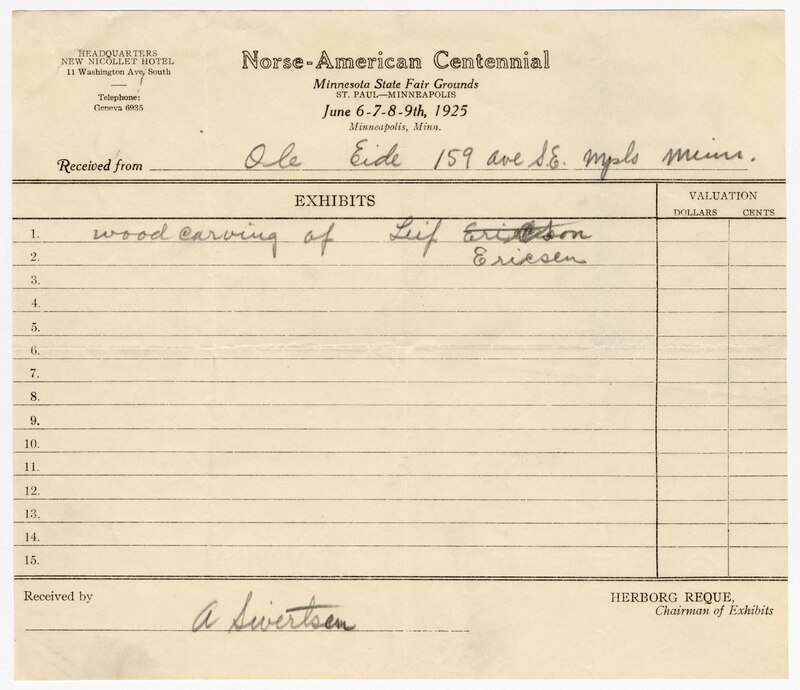 HEADQUARTERS
NEW NICOLLET HOTEL
11 Washington Ave, South
Telephone:
Geneva 6935
Norse-American Centennial
Minnesota State Fair Grounds
ST. PAUL—MINNEAPOLIS
June 6-7-8-9th, 1925
Minneapolis, Minn.
Received from Ole Eide 159 ave S.E. Mpls Minn.
EXHIBITS
VALUATION
DOLLARS CENTS
1. wood carving of Leif
2. Ericsen
3.
4.
5.
6.
7.
8.
9.
10.
11.
12.
13.
14.
15.
Received by
A Sivertsen
HERBORG REQUE,
Chairman of Exhibits